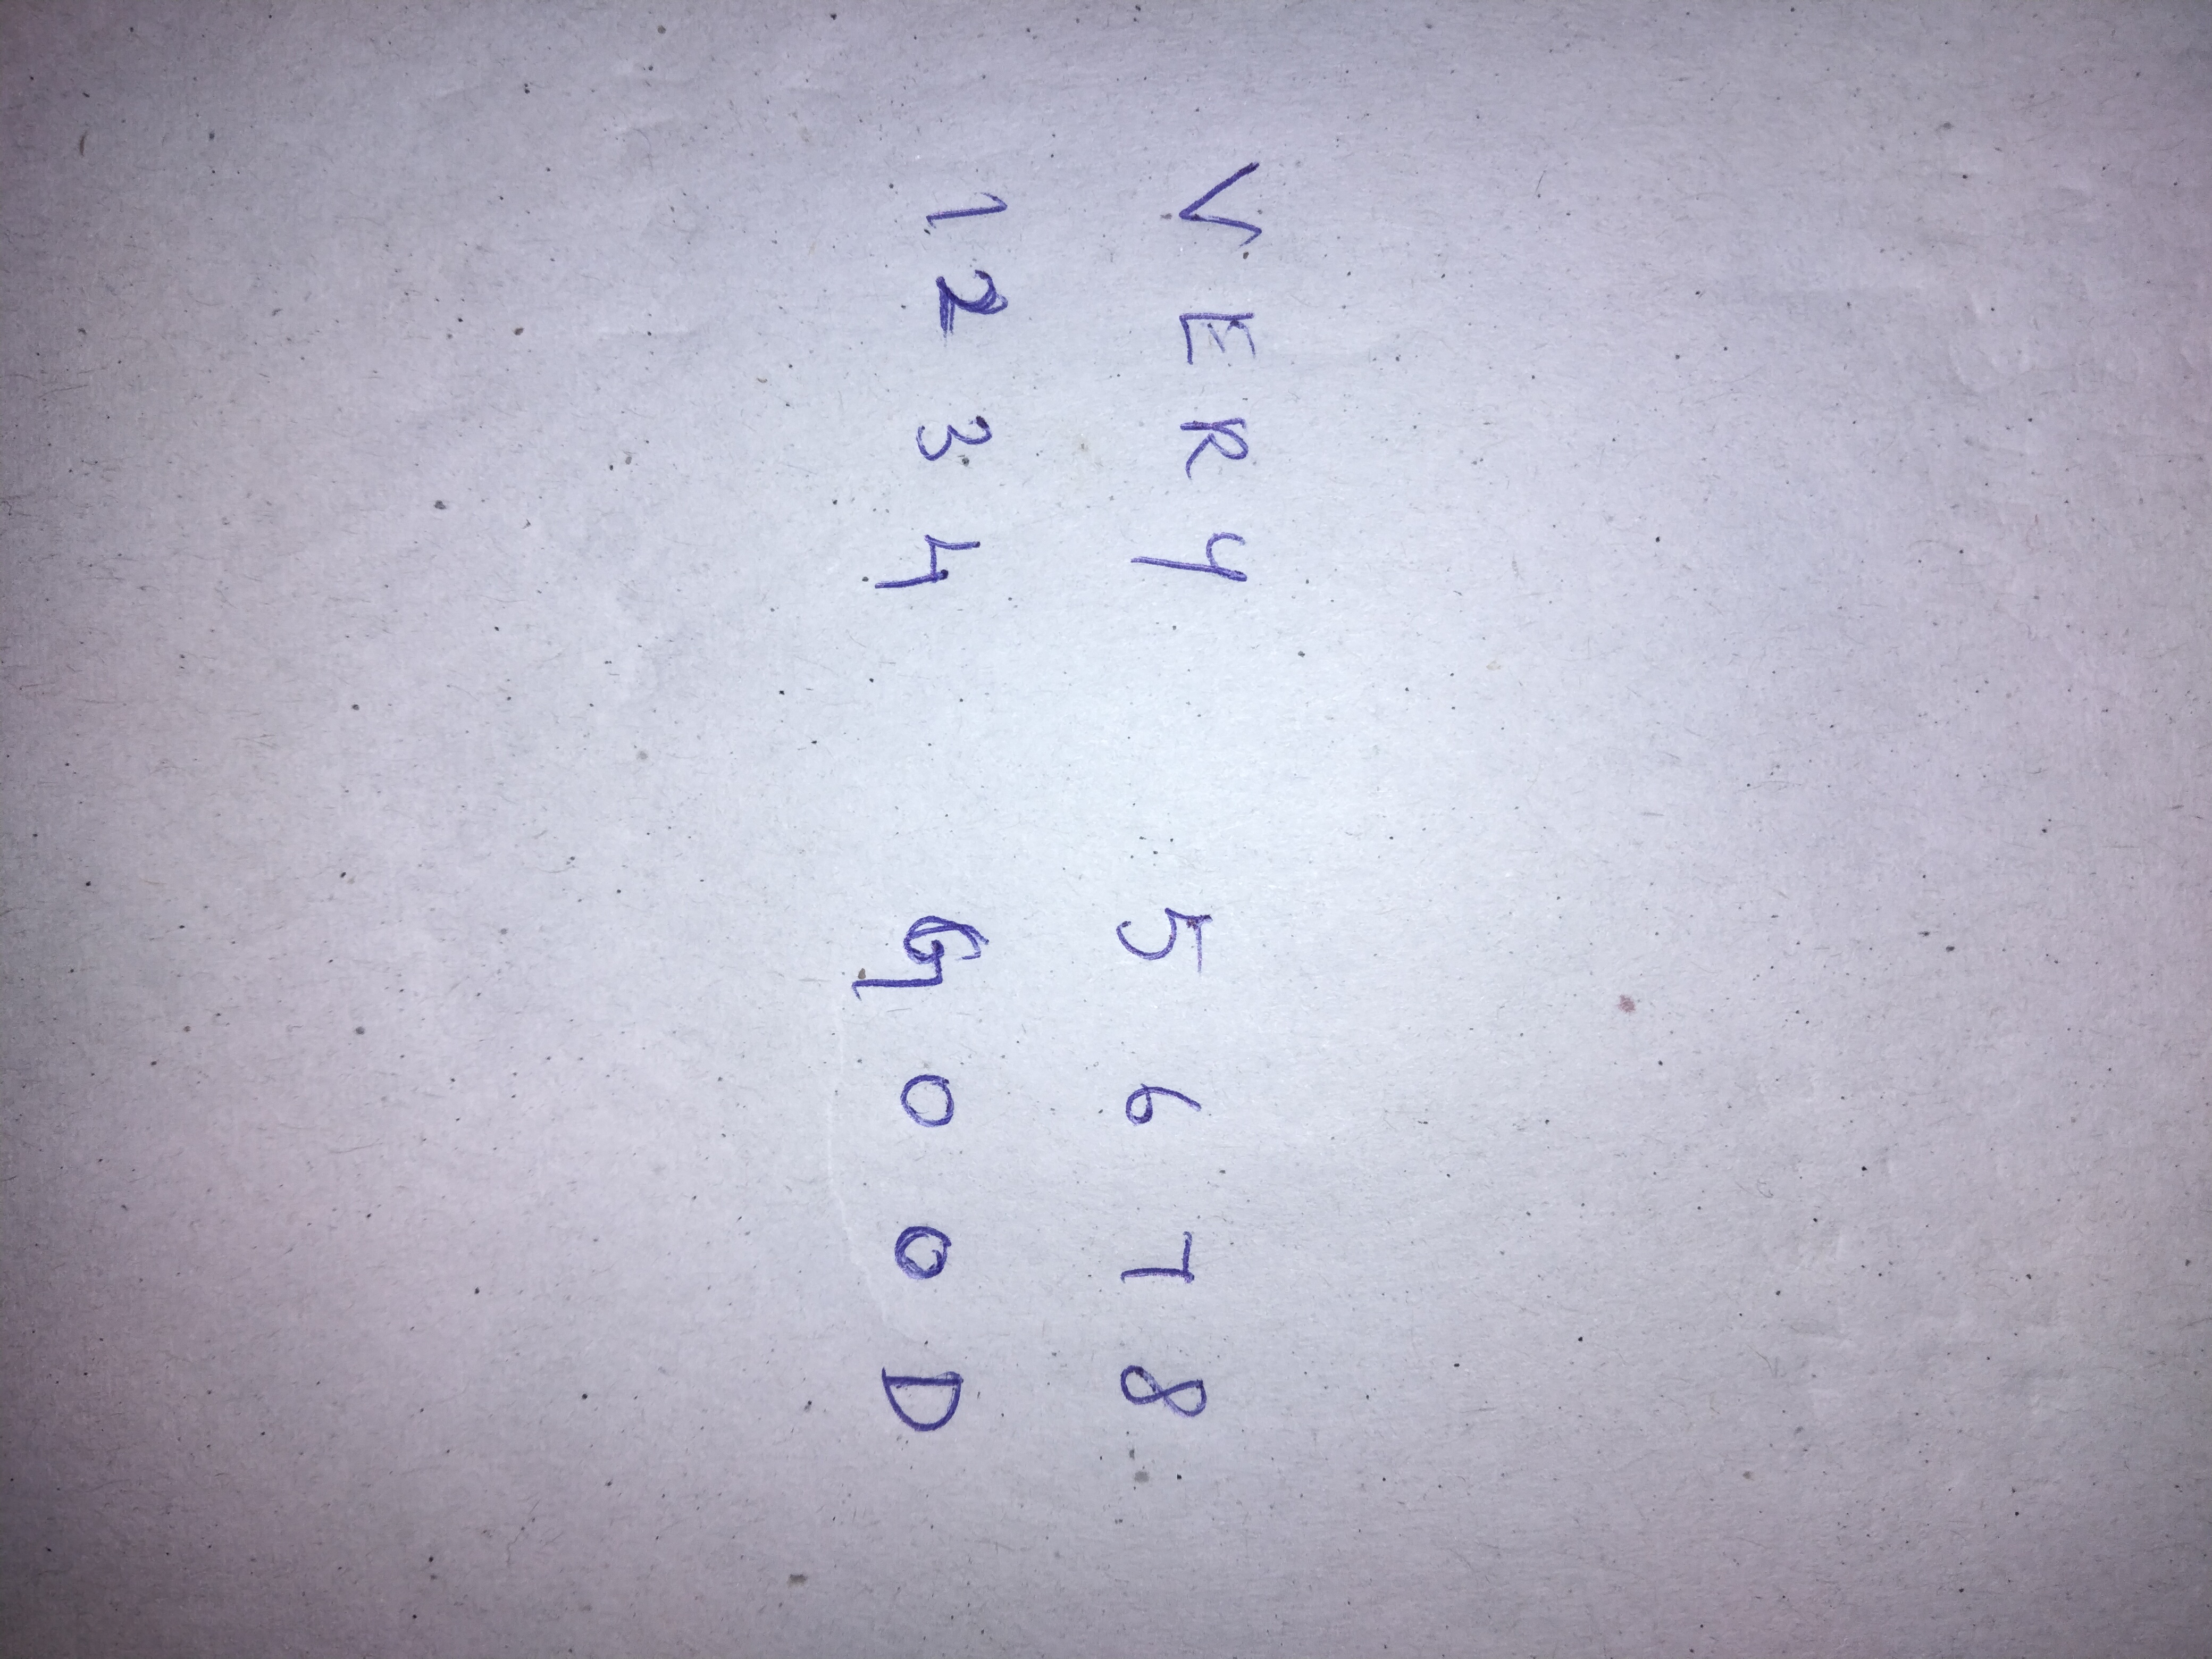 V E R Y 5 6 7 8
1 2 3 4 G O O D